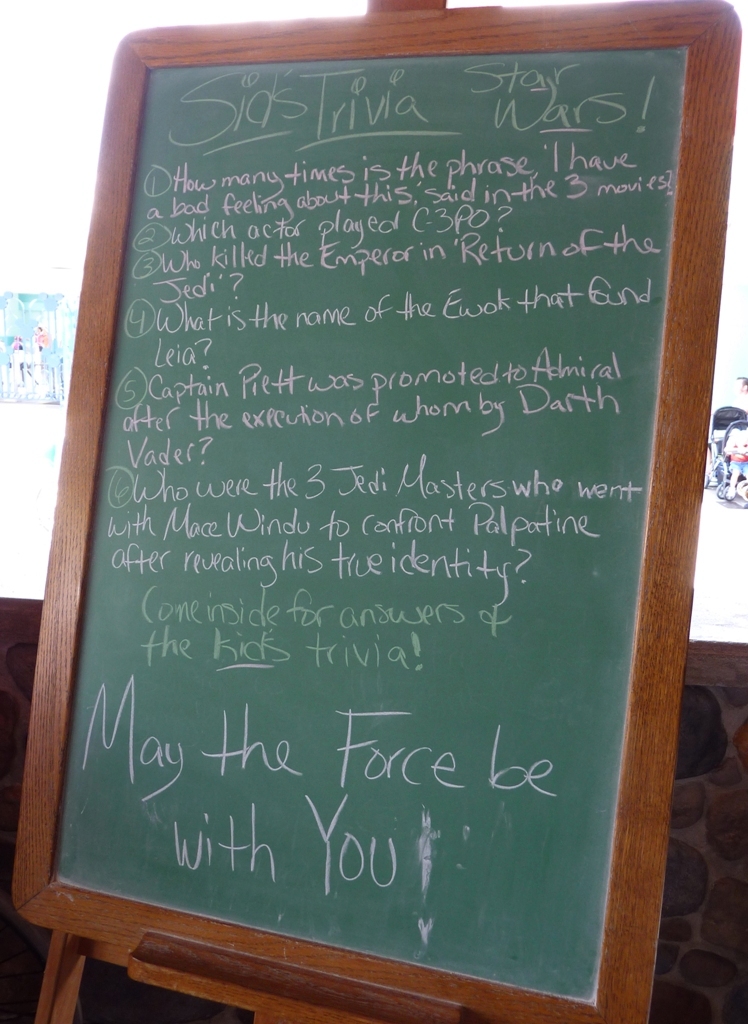 Sid's Trivia Star Wars!
① How many times is the phrase, 'I have
a bad feeling about this,' said in the 3 movies?
② Which actor played C-3PO?
③ Who killed the Emperor in 'Return of the
Jedi'?
④ What is the name of the Ewok that found
Leia?
⑤ Captain Piett was promoted to Admiral
after the execution of whom by Darth
Vader?
⑥ Who were the 3 Jedi Masters who went
with Mace Windu to confront Palpatine
after revealing his true identity?
Come inside for answers &
the kid's trivia!
May the Force be
with You!